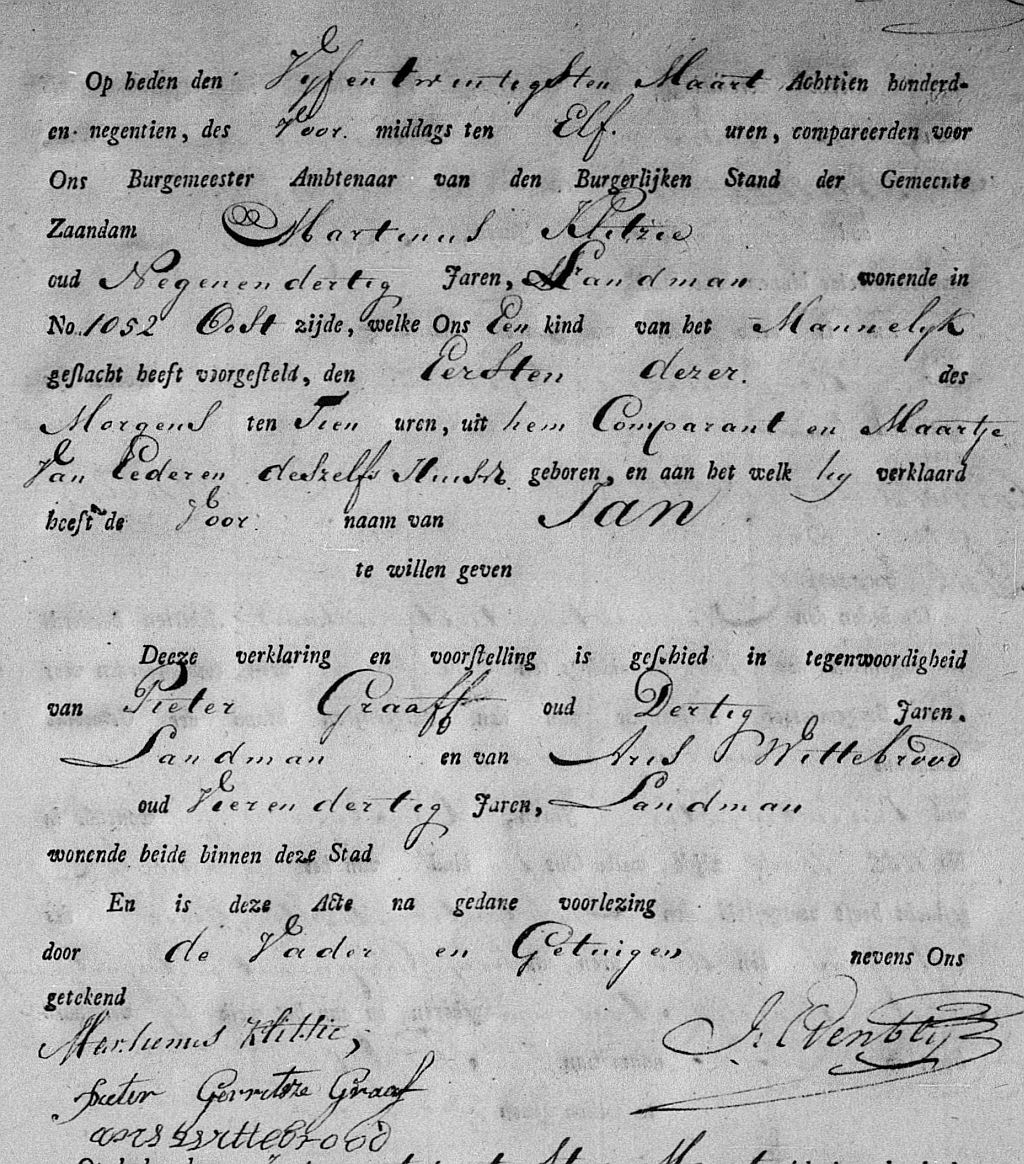 Op heden den Vyf en twintigsten Maart Achttien honderd-
en negentien, des Voor middags ten Elf. uren, compareerden voor
Ons Burgemeester Ambtenaar van den Burgerlijken Stand der Gemeente
Zaandam Martinus Klitzie
oud Negenendertig Jaren, Landman wonende in
No. 1052 Oost zijde, welke Ons Een kind van het Mannelyk
geslacht heeft voorgesteld, den Eersten dezer. des
Morgens ten Tien uren, uit hem Comparant en Maartje
Van Eederen deszelfs Huisv. geboren, en aan het welk hy verklaard
heeft de Voor naam van Jan
te willen geven
Deeze verklaring en voorstelling is geschied in tegenwoordigheid
van Pieter Graaff oud Dertig Jaren.
Landman en van Aris Wittebrood
oud Vierendertig Jaren, Landman
wonende beide binnen deze Stad
En is deze Acte na gedane voorlezing
door de Vader en Getuigen nevens Ons
getekend
Martienus Klitzie,
pieter Gerritsze Graaf
aris wittebrood